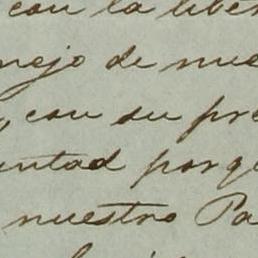 con la liber
nejo de nue
, con su pre
untad porqu
nuestro Pa